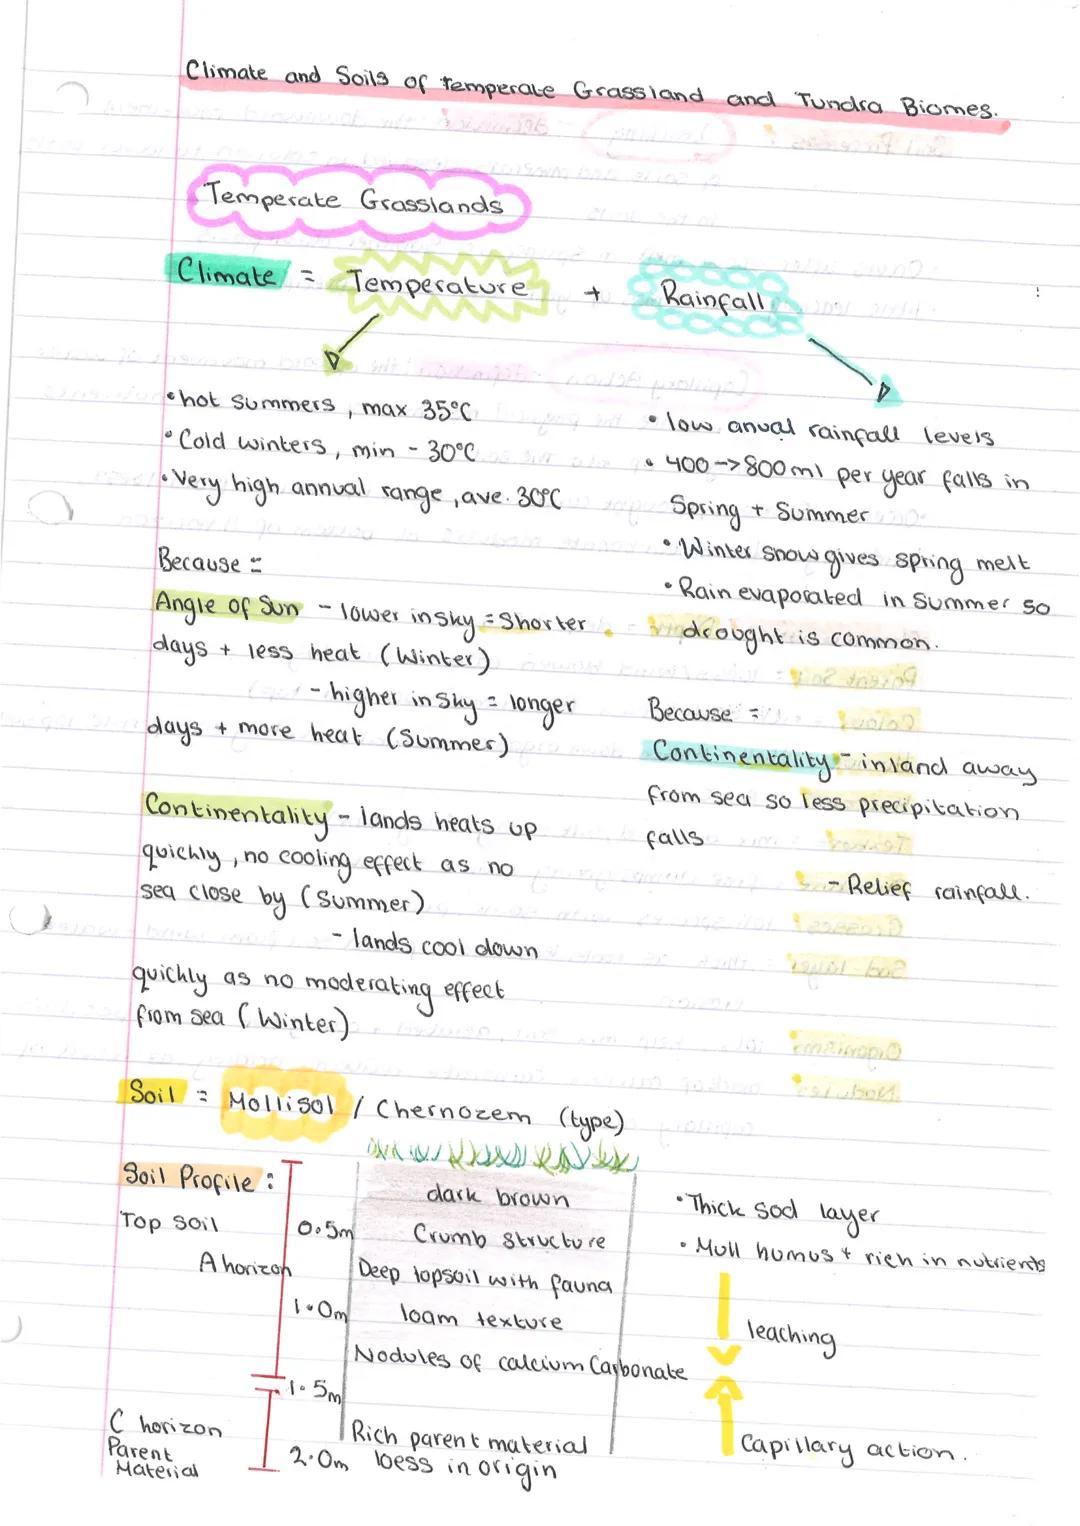 Climate and Soils of temperate Grassland and Tundra Biomes.
Temperate Grasslands
Climate = Temperature + Rainfall
• hot summers, max 35°C
• Cold winters, min - 30°C
• Very high annual range, ave. 30°C
Because =
Angle of Sun - lower in sky = Shorter
days + less heat (Winter)
- higher in sky = longer
days + more heat (Summer)
Continentality - lands heats up
quickly, no cooling effect as no
sea close by (Summer)
- lands cool down
quickly as no moderating effect
from sea (Winter)
• low anual rainfall levels
• 400->800ml per year falls in
Spring + Summer
• Winter snow gives spring melt
• Rain evaporated in Summer so
drought is common.
Because =
Continentality - inland away
from sea so less precipitation
falls
- Relief rainfall.
Soil = Mollisol / Chernozem (type)
Soil Profile :
Top soil
A horizon
0.5m
1.0m
1.5m
2.0m
C horizon
Parent
Material
dark brown
Crumb structure
Deep topsoil with fauna
loam texture
Nodules of calcium Carbonate
Rich parent material
loess in origin
• Thick sod layer
• Mull humus + rich in nutrients
leaching
Capillary action.